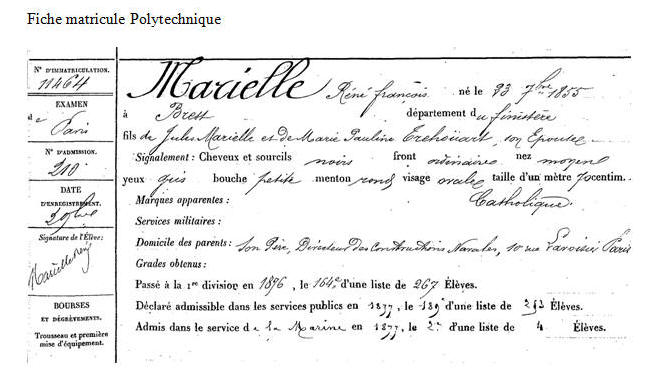 Fiche matricule Polytechnique
N° D'IMMATRICULATION.
11464
EXAMEN
de
Paris
N° D'ADMISSION.
210
DATE
D'ENREGISTREMENT.
Signature de l'Élève:
Marielle René
BOURSES
ET DÉGRÈVEMENTS.
Trousseau et première
mise d'équipement.
Marielle René françois né le 23 7bre 1855
à Brest département du finistère
fils de Jules Marielle et de Marie Pauline Trehouart, son Epouse
Signalement: Cheveux et sourcils noirs front ordinaire nez moyen
yeux gris bouche petite menton rond visage ovale taille d'un mètre 70 centim.
Marques apparentes: Catholique.
Services militaires:
Domicile des parents: son Père, Directeur des Constructions Navales, 10 rue Lavoisier Paris
Grades obtenus:
Passé à la 1re division en 1876, le 164e d'une liste de 267 Élèves.
Déclaré admissible dans les services publics en 1877, le 189e d'une liste de Élèves.
Admis dans le service de la Marine en 1877, le 2e d'une liste de 4 Élèves.